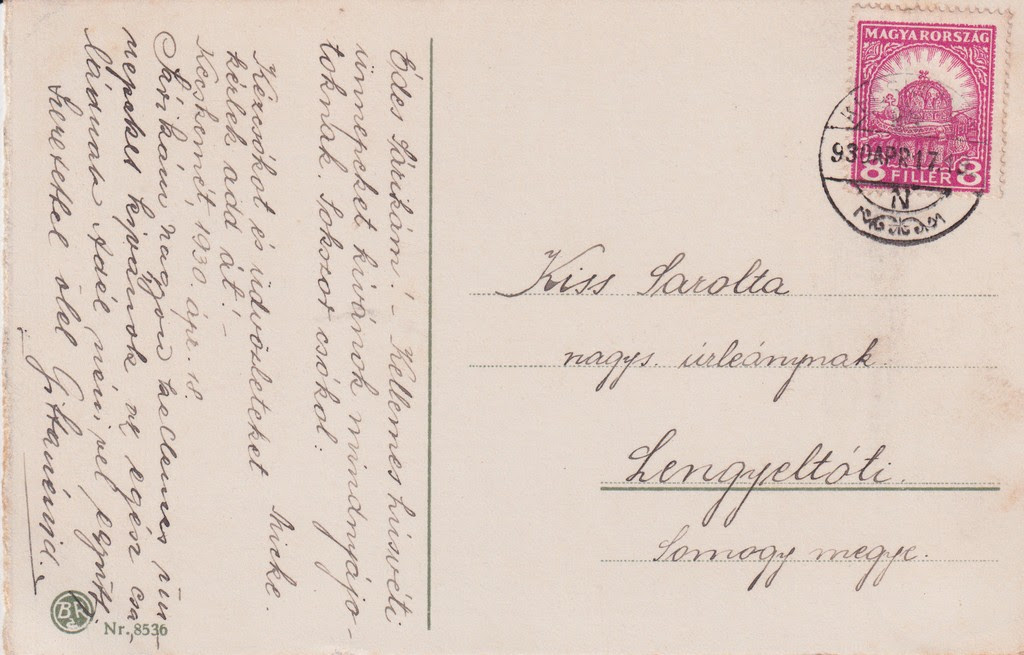 Édes Sárikám! – Kellemes húsvéti
ünnepeket kivánok mindnyájo-
toknak. Sokszor csókol:
Micke.
Kézcsókot és üdvözleteket
kérlek add át! –
Kecskemét, 1930. ápr. 15.
Sárikám nagyon kellemes ün-
nepeket kivánok az egész csa-
ládnak Adél nénivel együtt
Szeretettel ölel Gittanénid.
BR
Nr. 8536
MAGYARORSZÁG
8 FILLÉR 8
930 APR 17
N
Kiss Sarolta
nagys. úrleánynak
Lengyeltóti.
Somogy megye.